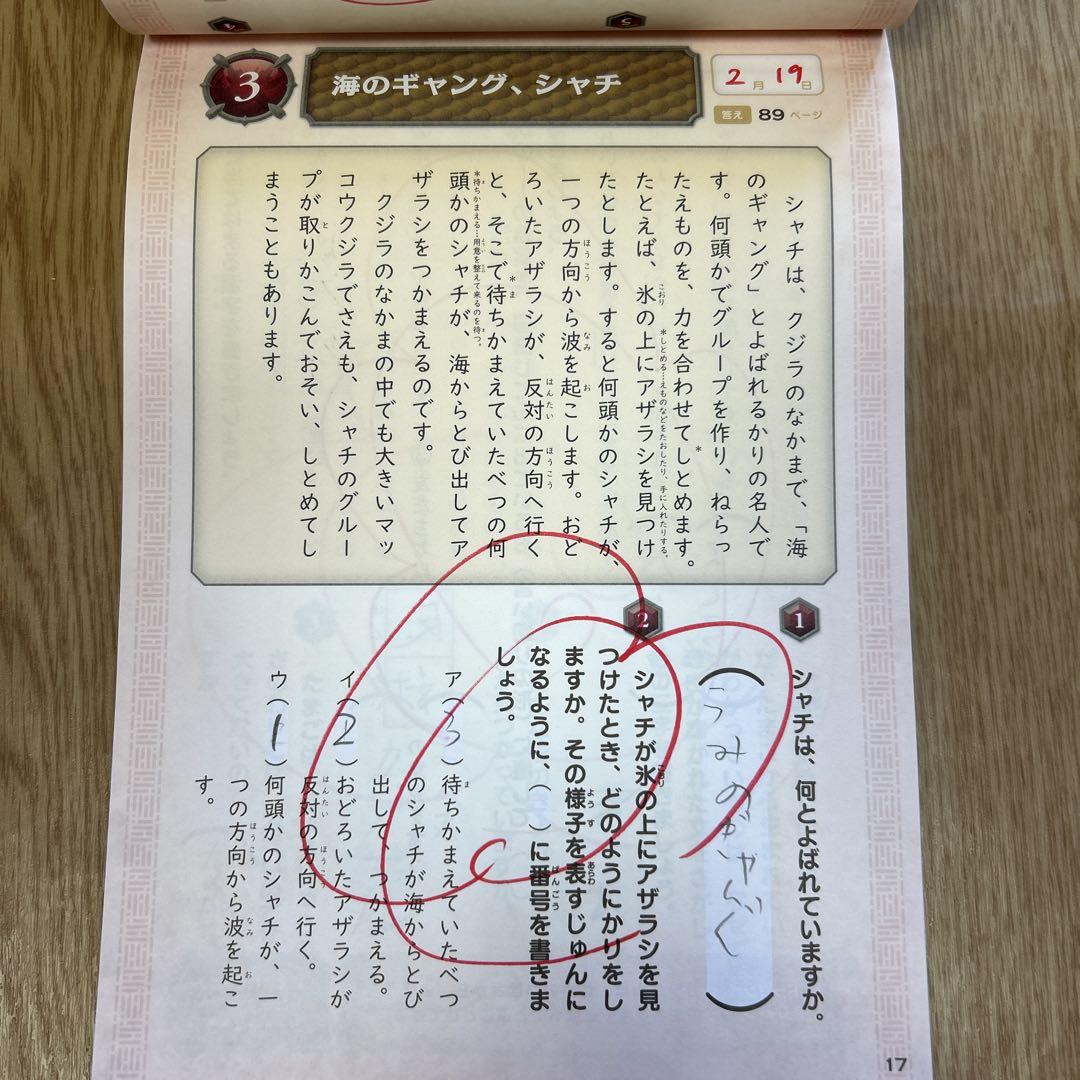 3
海のギャング、シャチ
2月19日
答え 89ページ
シャチは、クジラのなかまで、「海
のギャング」とよばれるかりの名人で
す。何頭かでグループを作り、ねらっ
たえものを、力を合わせて*しとめます。
*しとめる…えものなどをたおしたり、手に入れたりする。
たとえば、氷の上にアザラシを見つけ
たとします。すると何頭かのシャチが、
一つの方向から波を起こします。おど
ろいたアザラシが、反対の方向へ行く
と、そこで*待ちかまえていたべつの何
*待ちかまえる…用意を整えて来るのを待つ。
頭かのシャチが、海からとび出してア
ザラシをつかまえるのです。
クジラのなかまの中でも大きいマッ
コウクジラでさえも、シャチのグルー
プが取りかこんでおそい、しとめてし
まうこともあります。
1
シャチは、何とよばれていますか。
(うみのぎゃんぐ)
2
シャチが氷の上にアザラシを見
つけたとき、どのようにかりをし
ますか。その様子を表すじゅんに
なるように、( )に番号を書きま
しょう。
ア(3)待ちかまえていたべつ
のシャチが海からとび
出して、つかまえる。
イ(2)おどろいたアザラシが
反対の方向へ行く。
ウ(1)何頭かのシャチが、一
つの方向から波を起こ
す。
17